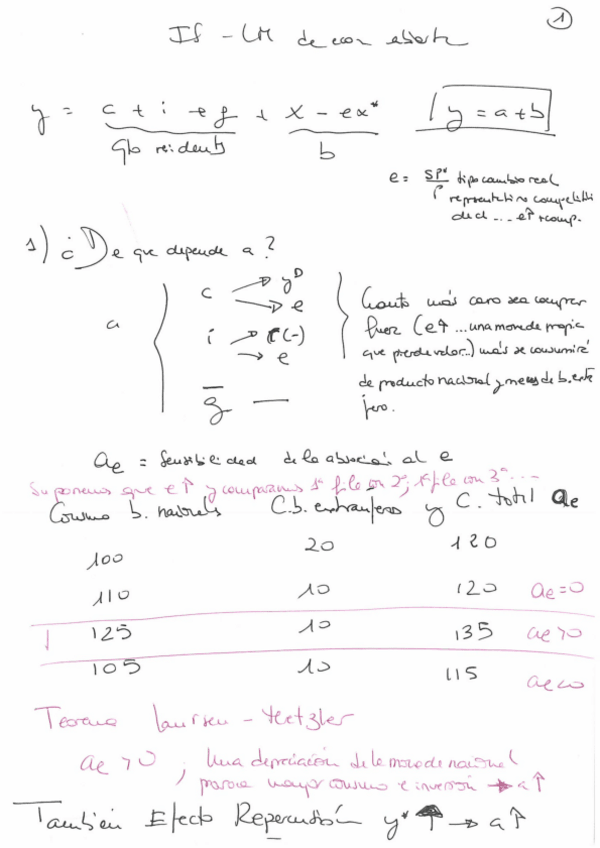 1
IS - LM de econ abierta
y = c + i + g + x - ex* y = a + b
gto residents b
e = SP*/P tipo cambio real
representativo competitivi
dad ... e↑ +comp.
1) ¿De que depende a?
a c → yD
→ e
i → r(-)
→ e
g —
Cuanto más caro sea comprar
fuera (e↑ ... una moneda propia
que pierde valor...) más se consumirá
de producto nacional y menos de b. extran
jero.
ae = sensibilidad de la absorción al e
Suponemos que e↑ y comparamos 1ª fila con 2ª; 1ª fila con 3ª ...
Consumo b. nacionals C.b. extranjeros y C. total ae
100 20 120
110 10 120 ae=0
125 10 135 ae>0
105 10 115 ae<0
Teorema Laursen - Metzler
ae > 0 ; Una depreciación de la moneda nacional
provoca mayor consumo e inversión → a↑
También Efecto Repercusión y* ↑ → a↑